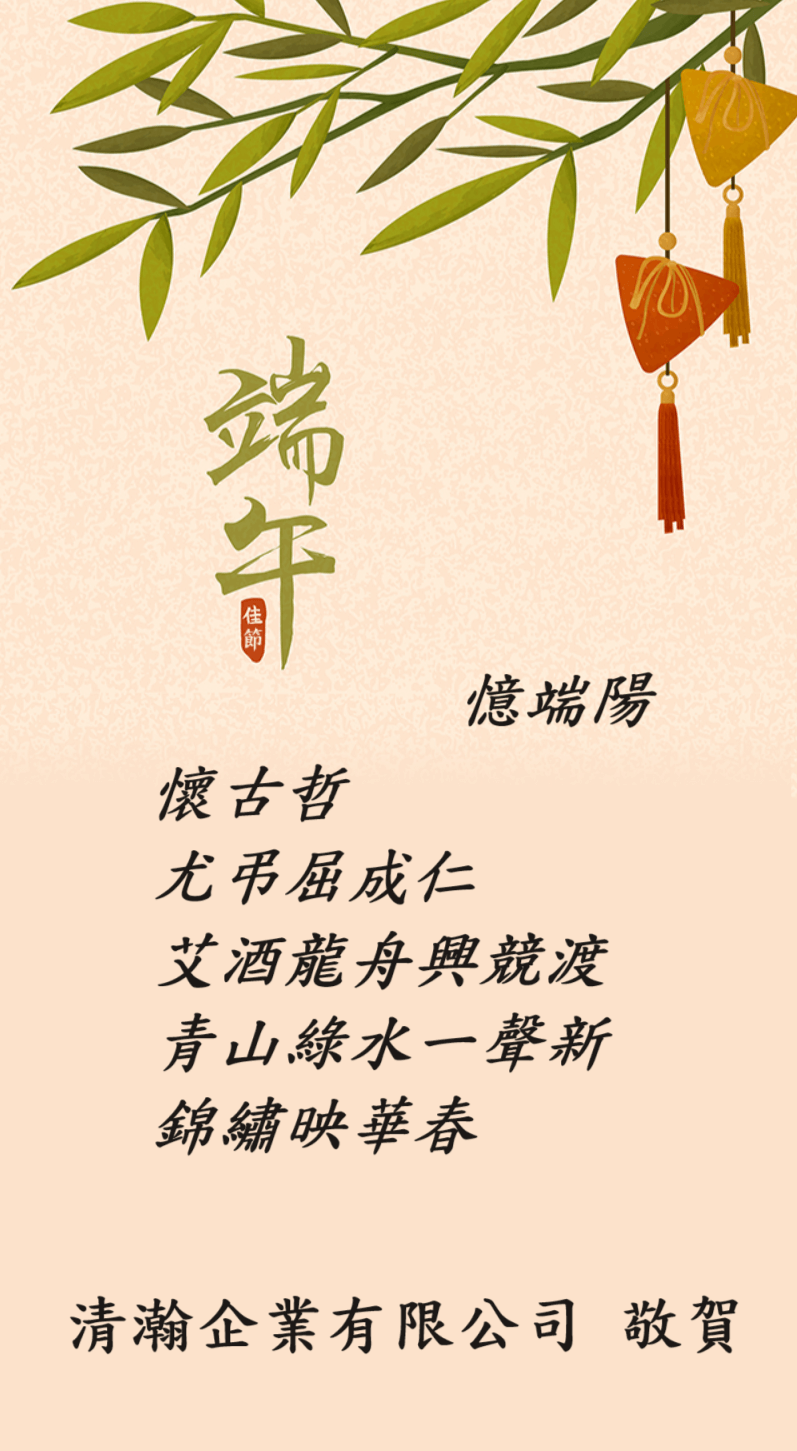 端午
佳節
憶端陽
懷古哲
尤弔屈成仁
艾酒龍舟興競渡
青山綠水一聲新
錦繡映華春
清瀚企業有限公司 敬賀